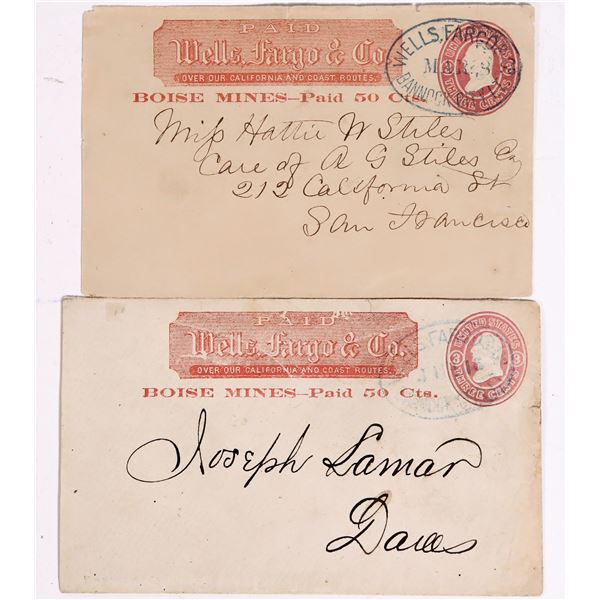 PAID
Wells, Fargo & Co.
OVER OUR CALIFORNIA AND COAST ROUTES.
BOISE MINES—Paid 50 Cts.
WELLS, FARGO
BANNOCK
THREE CENTS
Miss Hattie W Stiles
Care of A G Stiles
212 California St
San Francisco
PAID
Wells, Fargo & Co.
OVER OUR CALIFORNIA AND COAST ROUTES.
BOISE MINES—Paid 50 Cts.
UNITED STATES
3 3
THREE CENTS
Joseph Lamar